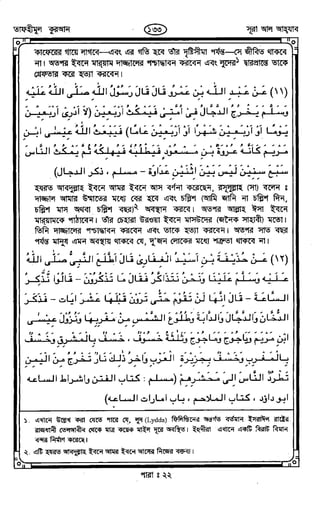 তাফহীমুল কুরআন
১৬৩
সূরা আল আহযাব
কাফেরের গায়ে লাগবে—এবং এর গতি হবে তাঁর দৃষ্টিসীমা পর্যন্ত—সে জীবিত থাকবে
না। অতপর ইবনে মারয়াম দাজ্জালের পশ্চাদ্ধাবন করবেন এবং লুদের১ দ্বারপ্রান্তে তাকে
গ্রেফতার করে হত্যা করবেন।
(١١) عن عبد الله بن عمرو قال قال رسول الله صلى الله عليه
وسلم يخرج الدجال فى أمتى فيمكث أربعين (لا أدرى أربعين
يوما أو أربعين شهرا أو أربعين عاما) فيبعث الله عيسى ابن
مريم كانه عروة بن مسعود فيطلبه فيهلكه ثم يمكث الناس
سبع سنين ليس بين اثنين عداوة - مسلم ، ذكر الدجال)
হযরত আবদুল্লাহ ইবনে আমর ইবনে আস বর্ণনা করেছেন, রসূলুল্লাহ (সা) বলেন :
দাজ্জাল আমার উম্মতের মধ্যে বের হবে এবং চল্লিশ (আমি জানি না চল্লিশ দিন,
চল্লিশ মাস অথবা চল্লিশ বছর)২ অবস্থান করবে। অতপর আল্লাহ ঈসা ইবনে
মারয়ামকে পাঠাবেন। তাঁর চেহারা উরওয়া ইবনে মাসউদের (জনৈক সাহাবী) মতো।
তিনি দাজ্জালের পশ্চাদ্ধাবন করবেন এবং তাকে হত্যা করবেন। অতপর সাত বছর
পর্যন্ত মানুষ এমন অবস্থায় থাকবে যে, দু'জন লোকের মধ্যে শত্রুতা থাকবে না।
(١٢) عن حذيفة بن أسيد الغفارى قال اطلع النبى صلى الله
عليه وسلم علينا ونحن نتذاكر فقال ما تذكرون - قالوا نذكر
الساعة - قال انها لن تقوم حتى ترون قبلها عشر ايات - فذكر
الدخان والدجال والدابة وطلوع الشمس من مغربها ونزول عيسى
ابن مريم وياجوج وماجوج وثلاثة خسوف ، خسف بالمشرق وخسف
بالمغرب وخسف بجزيرة العرب واخر ذلك نار تخرج من اليمن
تطرد الناس الى محشرهم (مسلم : كتاب الفتن واشراط الساعه
ابو داؤد ، كتاب الملاحم ، باب امارات الساعه)
১. এখানে উল্লেখ করা যেতে পারে যে, লুদ (Lydda) ফিলিস্তিনের অন্তর্গত বর্তমান ইসরাঈল রাষ্ট্রের
রাজধানী তেলআবীব থেকে মাত্র কয়েক মাইল দূরে অবস্থিত। ইহুদীরা এখানে একটি বিরাট বিমান
বন্দর নির্মাণ করেছে।
২. এটি হযরত আবদুল্লাহ ইবনে আমর ইবনে আসের নিজের বক্তব্য।
পারা : ২২